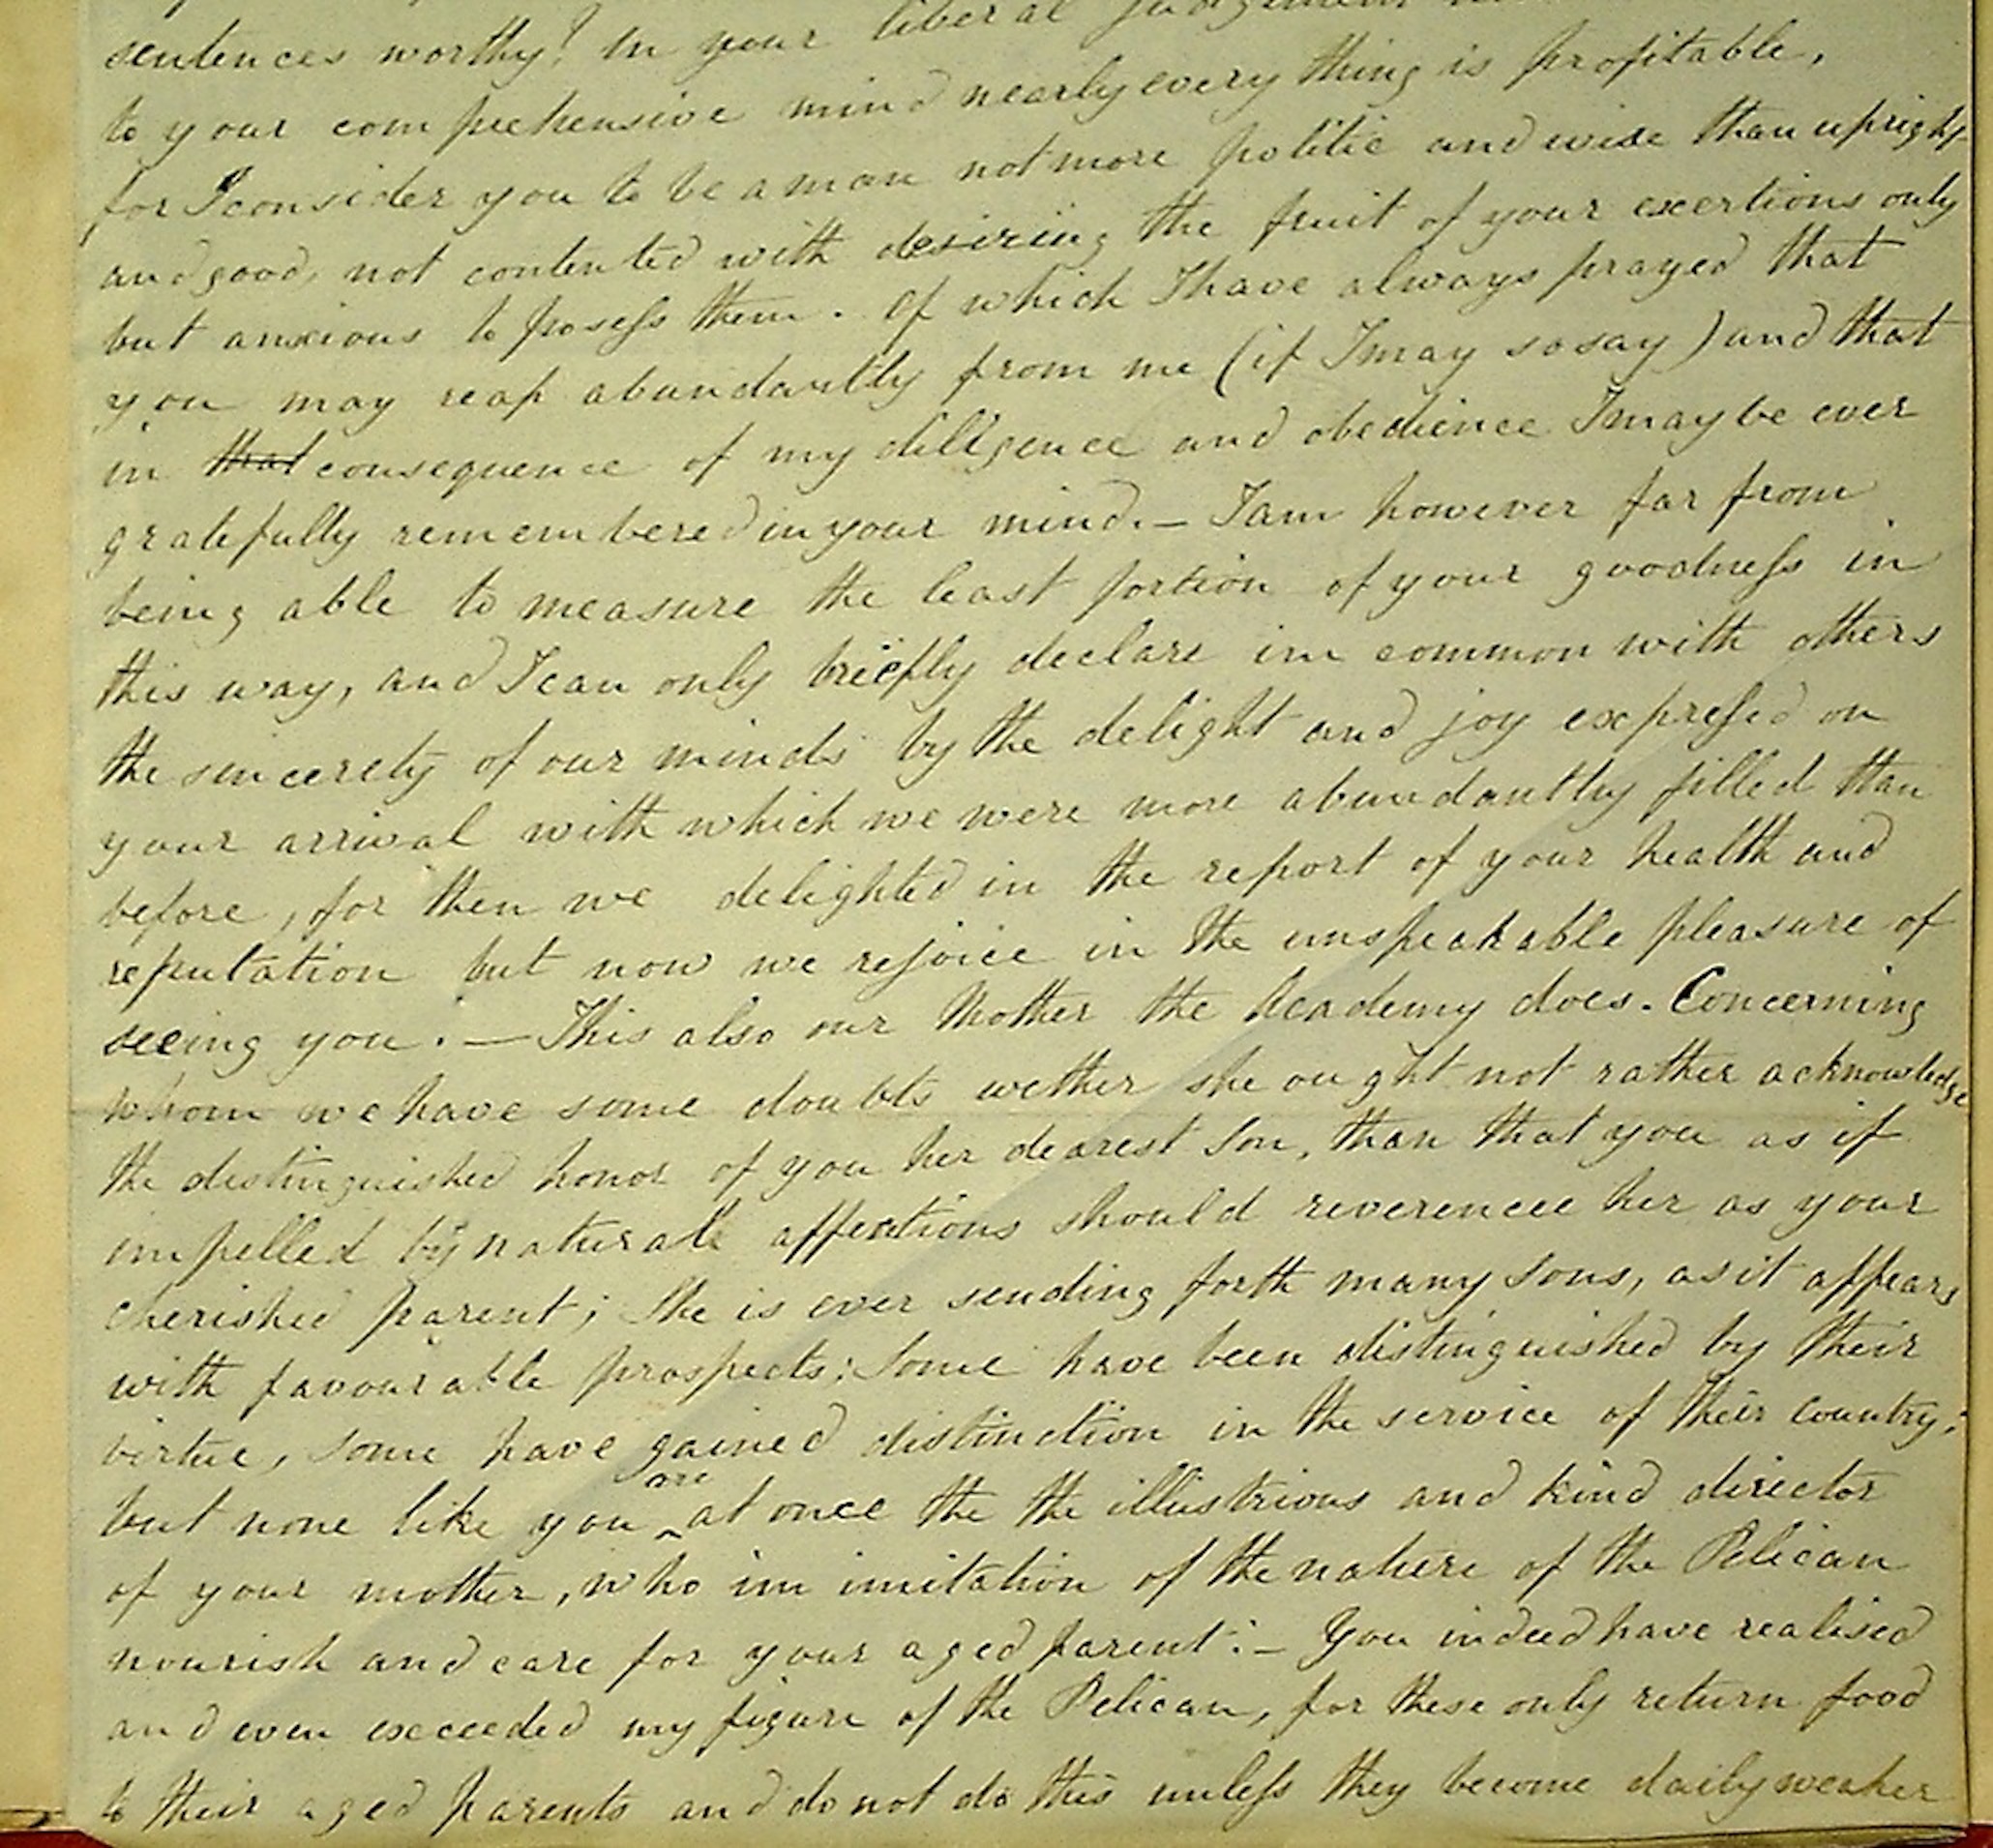 liberal judgement
sentences worthy! In your
to your comprehensive mind nearly every thing is profitable,
for I consider you to be a man not more politic and wise than upright
and good, not contented with desiring the fruit of your exertions only
but anxious to posess them. Of which I have always prayed that
you may reap abundantly from me (if I may so say) and that
in that consequence of my diligence and obedience I may be ever
gratefully remembered in your mind. — I am however far from
being able to measure the least portion of your goodness in
this way, and I can only briefly declare in common with others
the sincerety of our minds by the delight and joy expressed on
your arrival with which we were more abundantly filled than
before, for then we delighted in the report of your health and
reputation but now we rejoice in the unspeakable pleasure of
seeing you. — This also our Mother the Academy does. Concerning
whom we have some doubts wether she ought not rather acknowledge
the distinguished honor of you her dearest Son, than that you as if
impelled by naturall affections should reverencee her as your
cherished parent; She is ever sending forth many sons, as it appears
with favourable prospects; Some have been distinguished by their
virtue, some have gained distinction in the service of their country;
but none like you are at once the the illustrious and kind director
of your mother, who in imitation of the nature of the Pelican
nourish and care for your aged parent:— You indeed have realised
and even exceeded my figure of the Pelican, for these only return food
to their aged parents and do not do this unless they become daily weaker